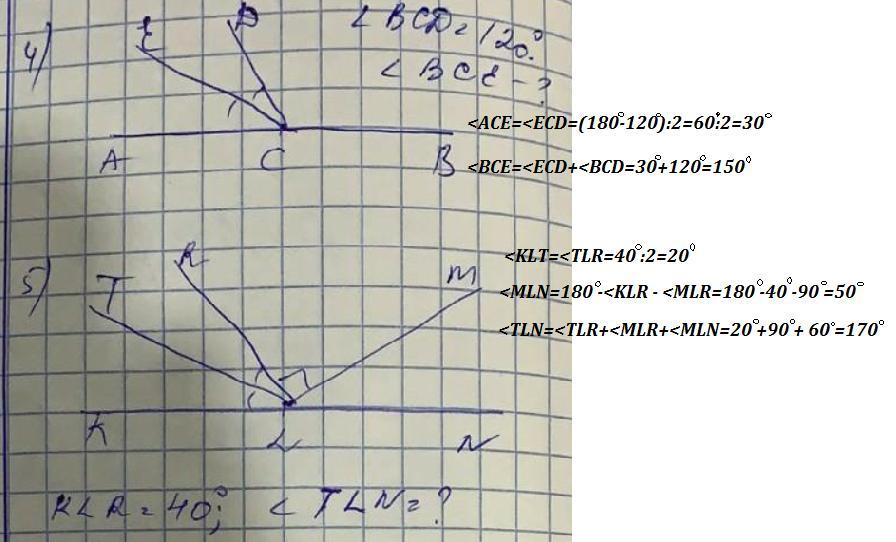 4) E D < BCD = 120°.
< BCE - ?
<ACE=<ECD=(180°-120°):2=60°:2=30°
A C B
<BCE=<ECD+<BCD=30°+120°=150°
5) T R M
<KLT=<TLR=40°:2=20°
<MLN=180°-<KLR - <MLR=180°-40°-90°=50°
<TLN=<TLR+<MLR+<MLN=20°+90°+ 60°=170°
K L N
KLR = 40°; < TLN = ?